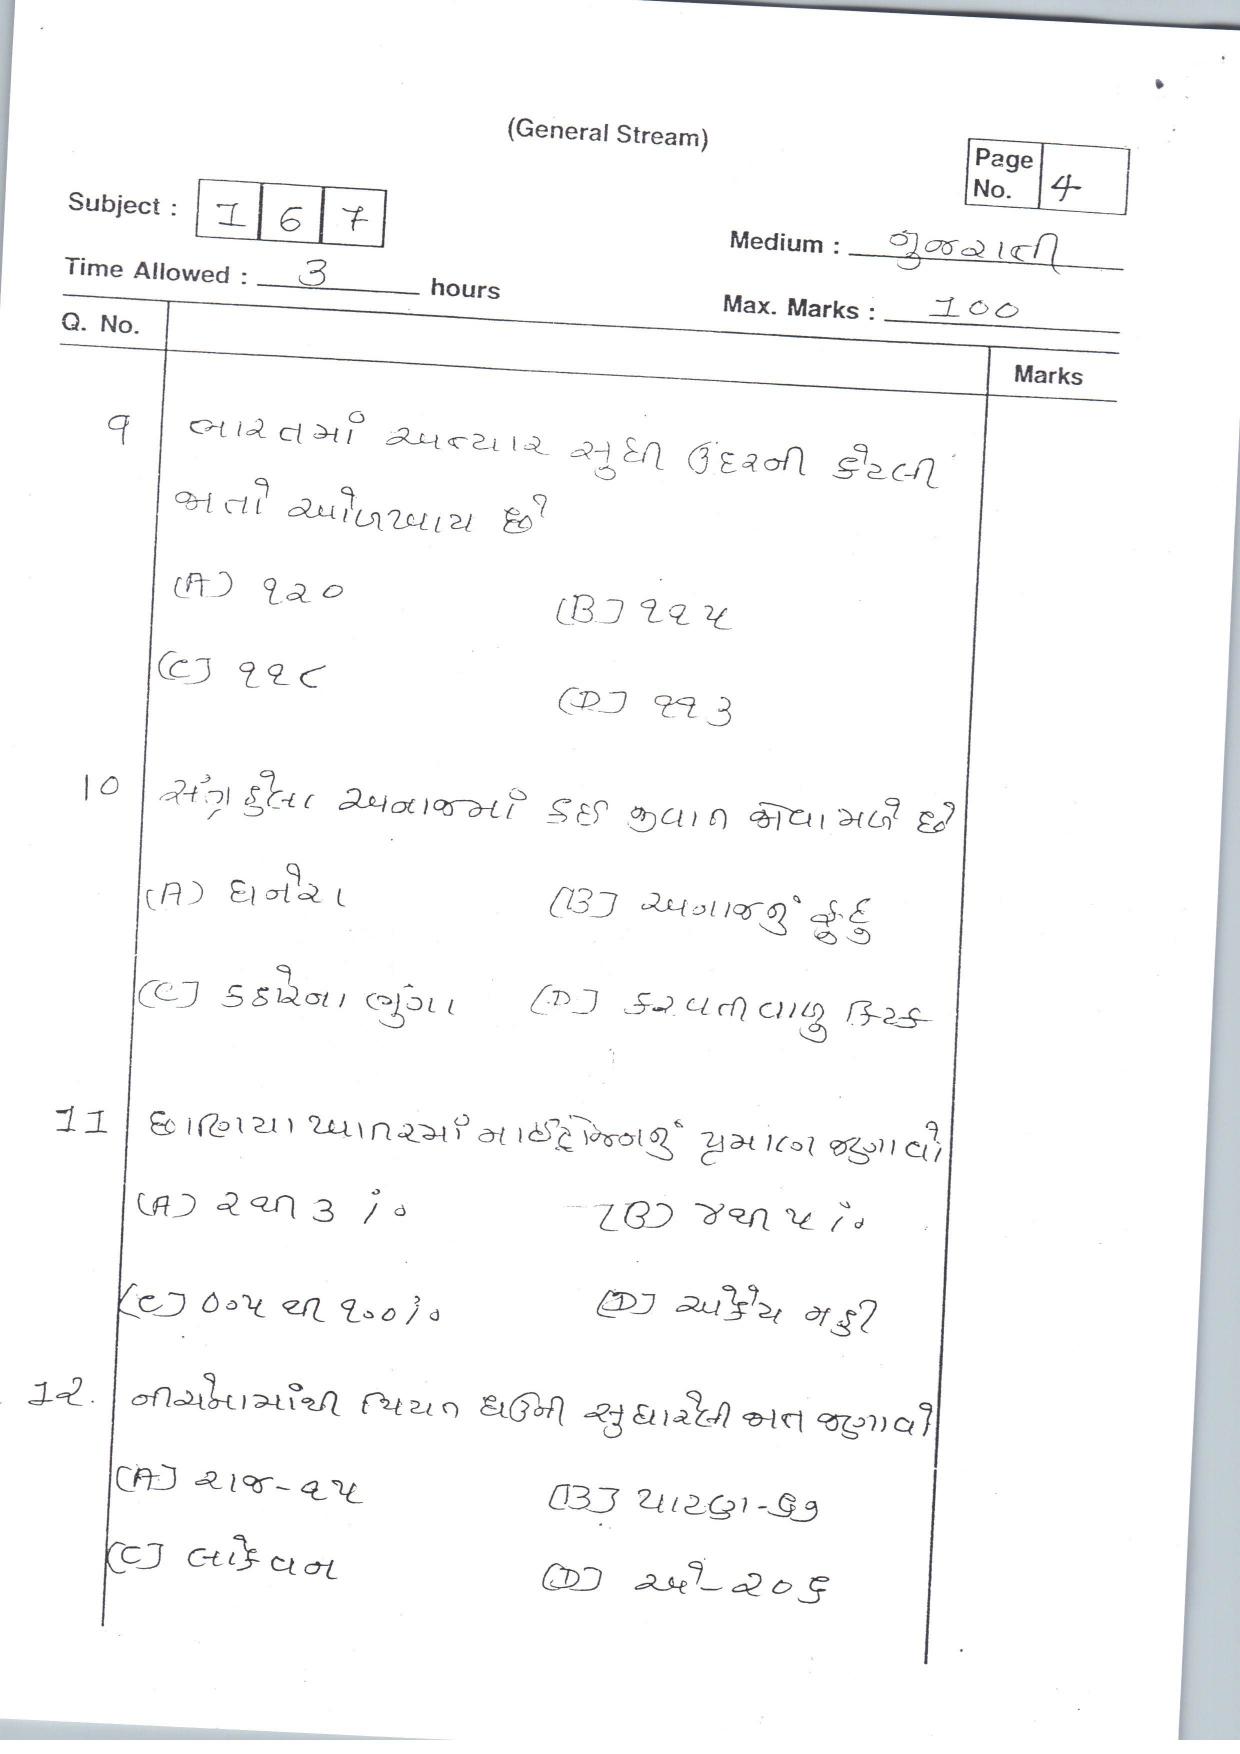 (General Stream)
Page No. 4
Subject : 1 6 7
Medium : ગુજરાતી
Time Allowed : 3 hours
Max. Marks : 100
Q. No.
Marks
9 ભારતમાં અત્યાર સુધી ઉંદરની કેટલી
જાતો ઓળખાય છે
(A) ૧૨૦ (B) ૧૧૫
(C) ૧૧૮ (D) ૧૧૩
10 સંગ્રહેલા અનાજમાં કઈ જીવાત જોવા મળે છે
(A) ધનેરા (B) અનાજનું ફૂદુ
(C) કઠોરના ભુંગા (D) કરવતીવાળુ કિટક
11 છાણિયા ખાતરમાં નાઈટ્રોજનનું પ્રમાણ જણાવો
(A) ૨ થી ૩ % (B) ૪ થી ૫ %
(C) ૦.૦૫ થી ૧.૦૦ % (D) એકેય નહી
12. નીચેનામાંથી પિયત ઘઉંની સુધારેલી જાત જણાવો
(A) રાજ-૧૫ (B) પાટણ-૬૭
(C) લોકવન (D) અે-૨૦૬